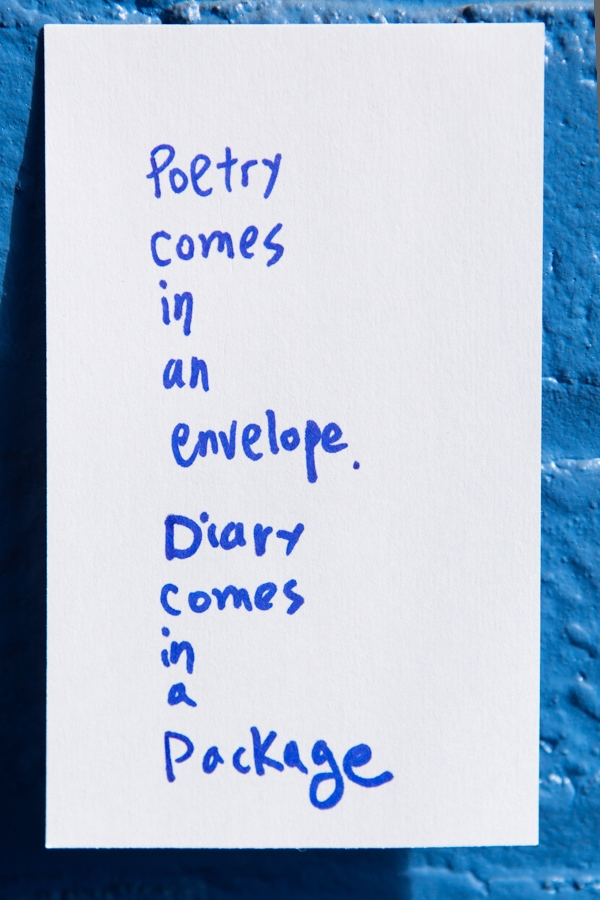 Poetry
comes
in
an
envelope.
Diary
comes
in
a
Package